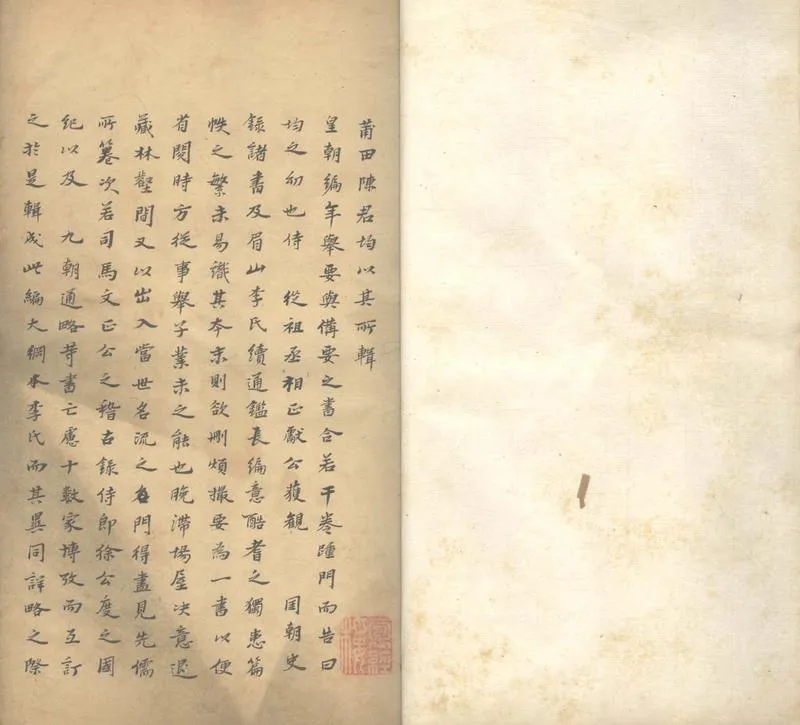 莆田陳君均以其所輯
皇朝編年舉要與備要之書合若干卷踵門而告曰
均之幼也侍 從祖丞相正獻公獲觀 國朝史
錄諸書及眉山李氏續通鑑長編意酷耆之獨患篇
帙之繁未易識其本末則欲刪煩撮要為一書以便
省閱時方從事舉子業未之能也晚滯場屋决意退
藏林壑間又以出入當世名流之門得盡見先儒
所篹次若司馬文正公之稽古錄侍郎徐公度之國
紀以及 九朝通略等書亡慮十數家博攷而互訂
之於是輯成此編大綱本李氏而其異同詳略之際